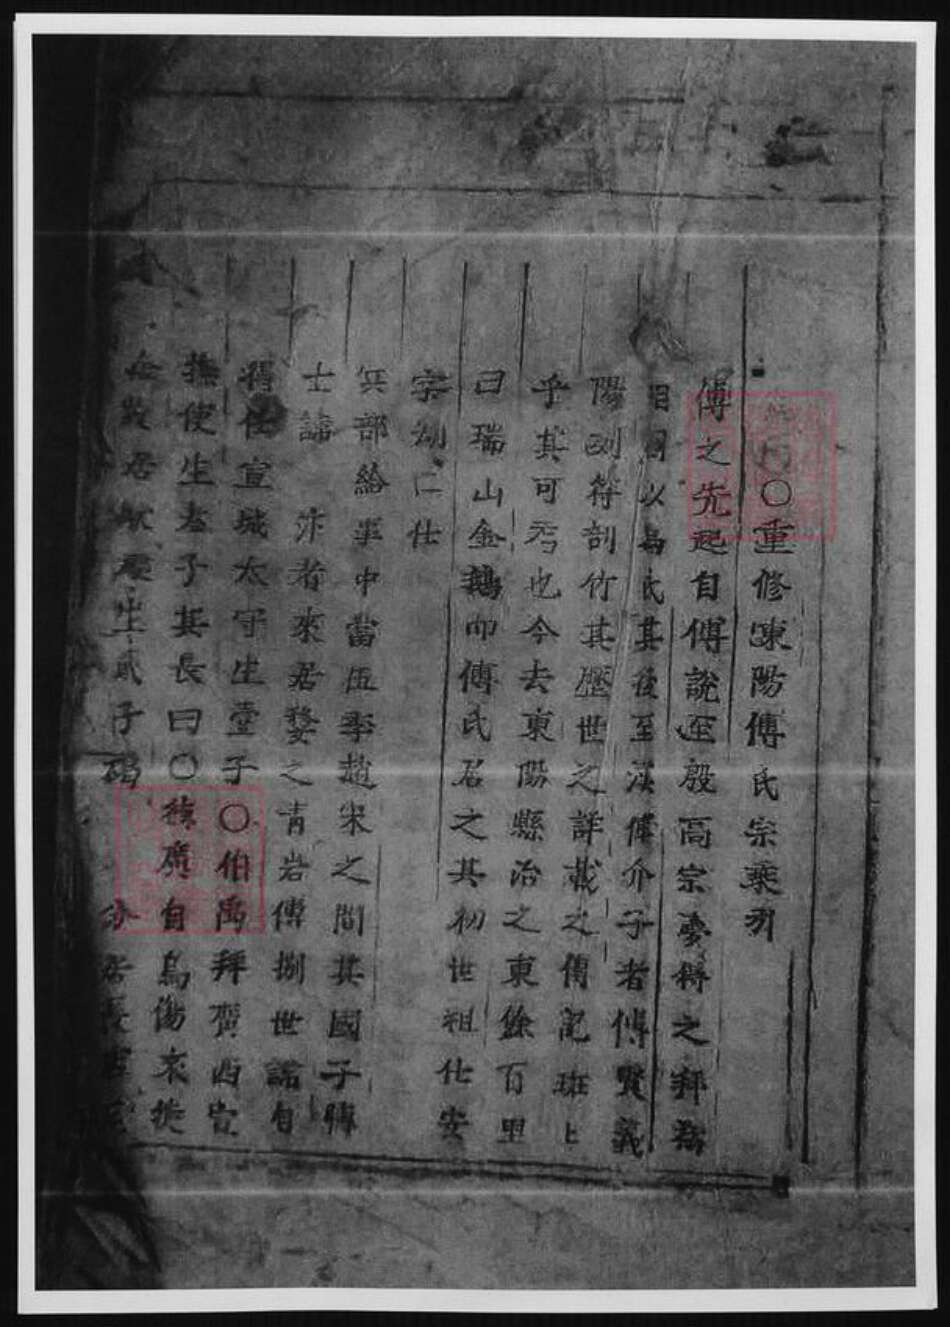 ○重修東陽傅氏宗乘引
傅之先起自傅說至殷高宗夢得之拜為
相因以為氏其後至漢傅介子者傅賢義
陽剖符剖竹其歷世之詳載之傳記班上
乎其可考也今去東陽縣治之東餘百里
曰瑞山金鵝而傅氏居之其初世祖仕安
宗幼仁仕
兵部給事中當伍季趙宋之間其國子博
士諱 沛者來居婺之青岩傅捌世諾自
得任宣城太守生壹子○伯禹拜廣西安
撫使生叁子其長曰○ 廣自烏傷來徙
生貳子 碣 分居長